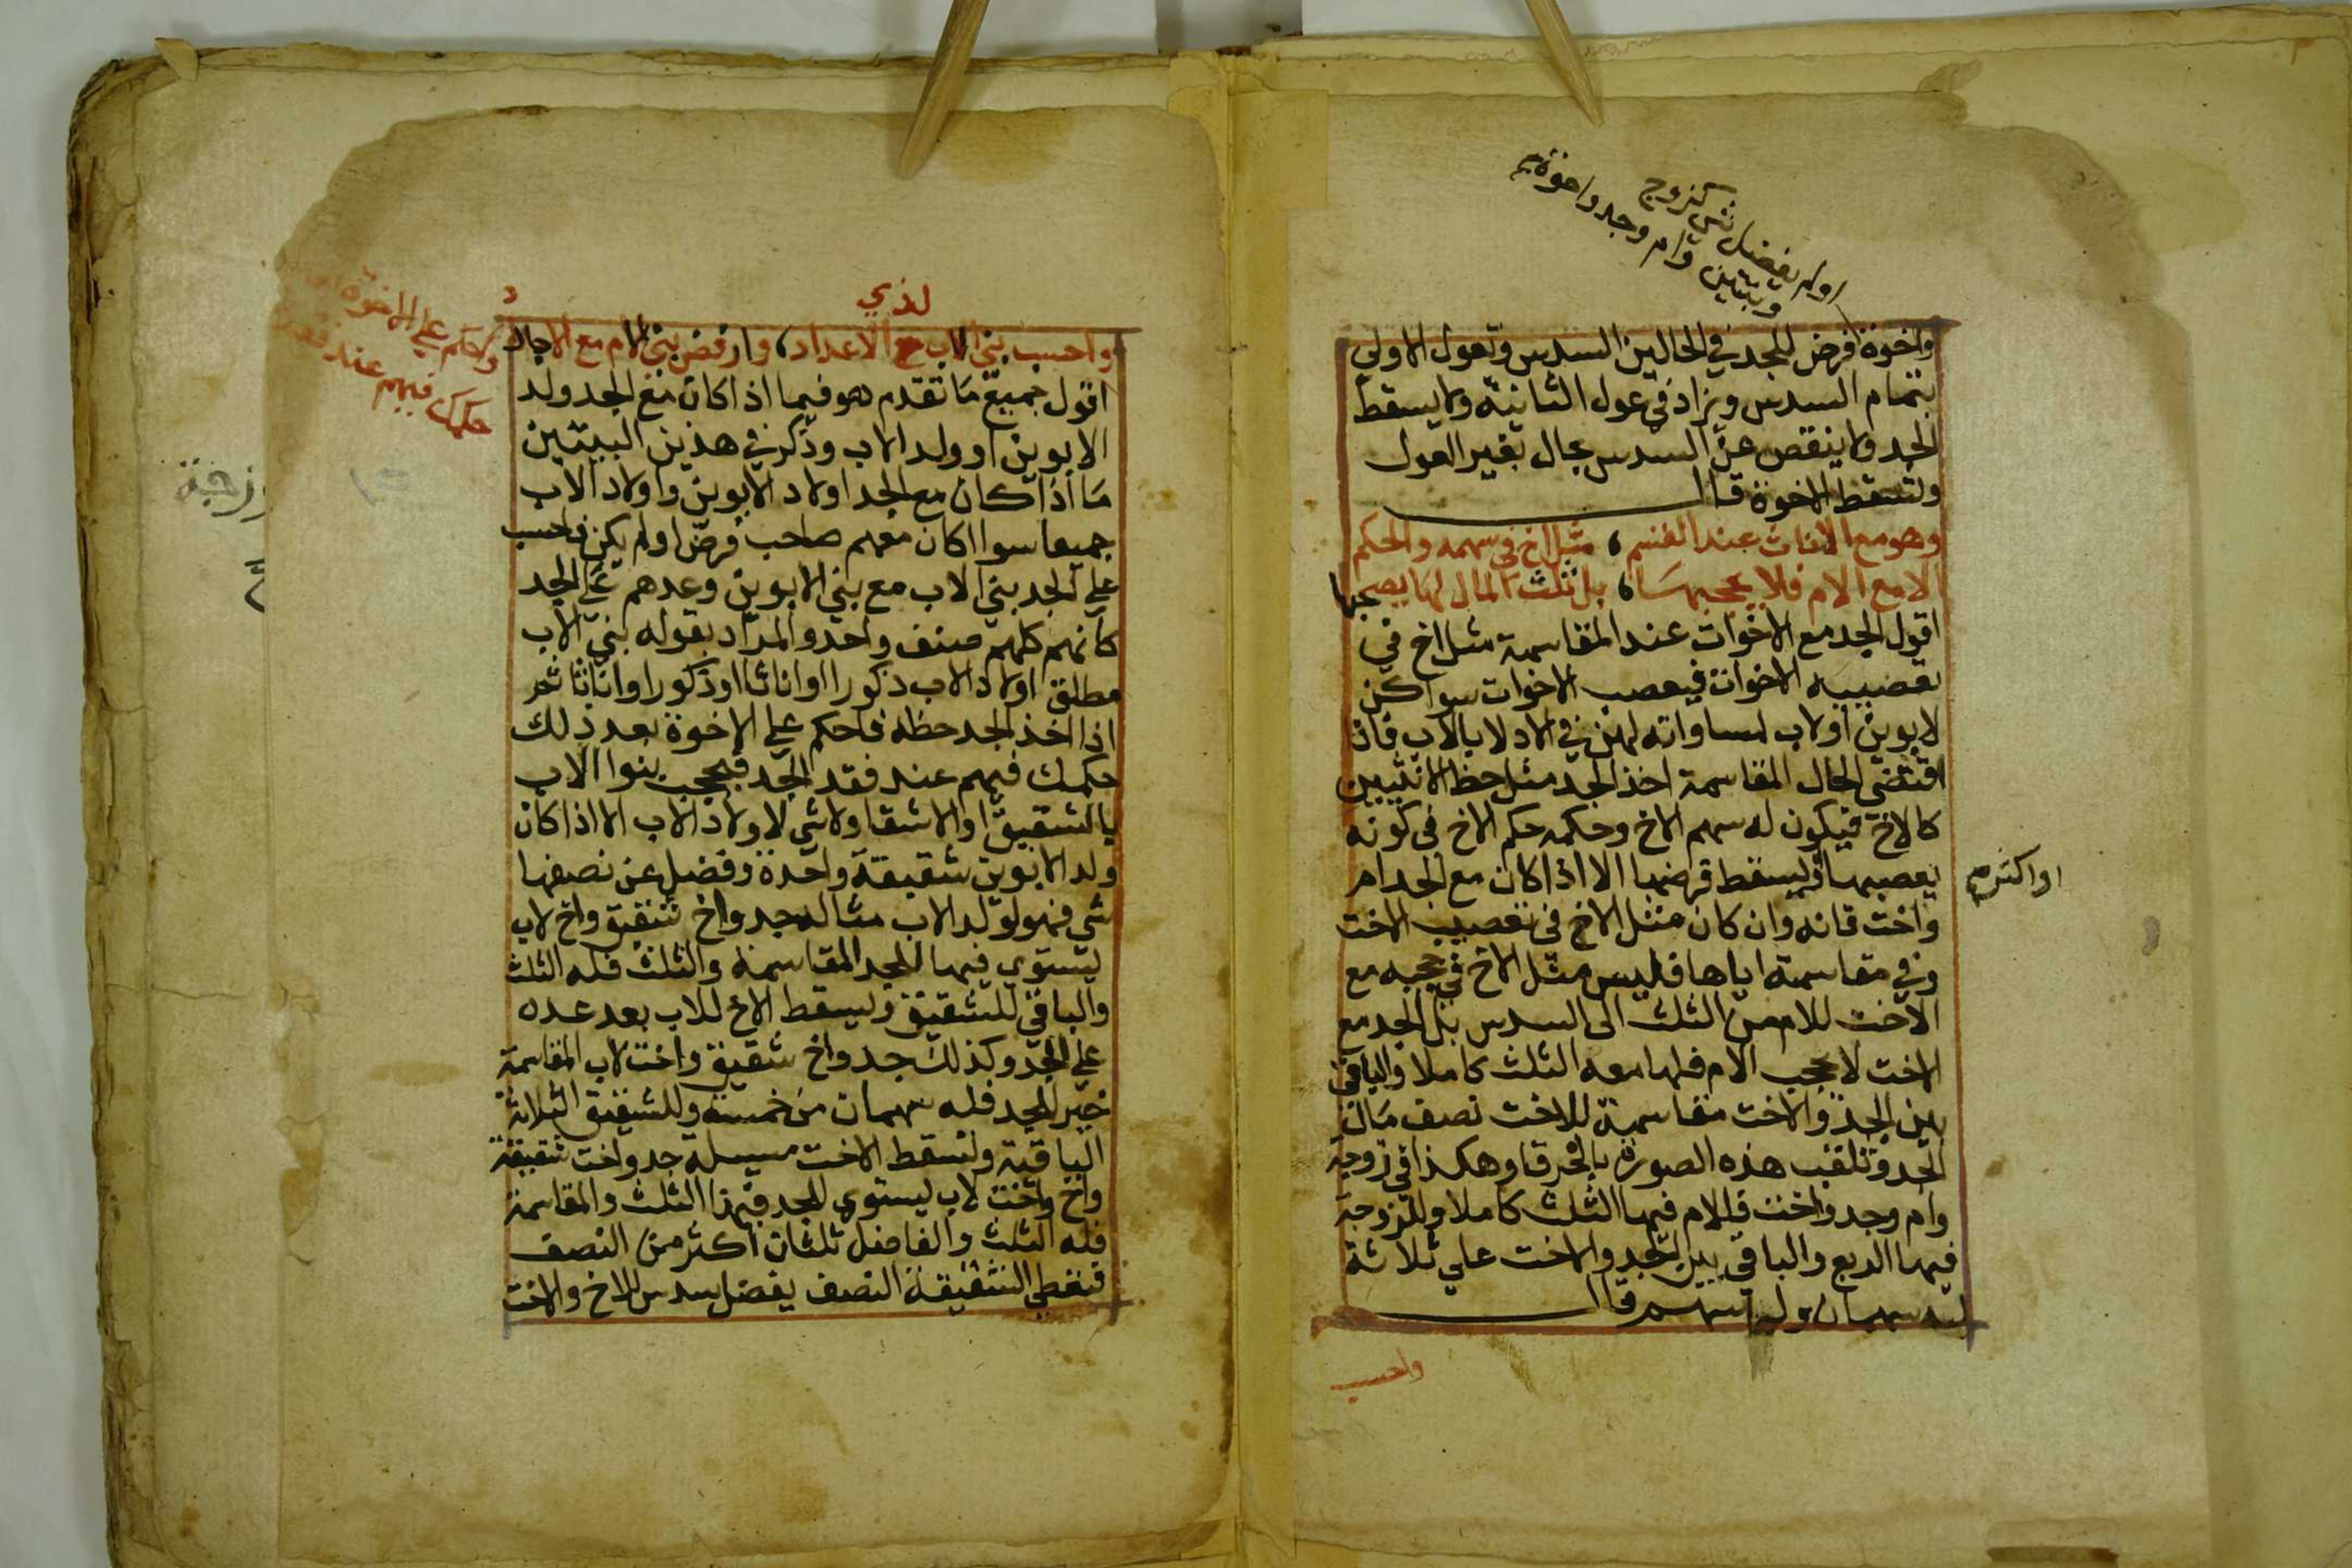 او لم يفضل شي كزوج
وبنتين وام وجد واخوة
واخوة فرض للجد في الحالين السدس وتعول الاولي
بتمام السدس ويزاد في عول الثانية ولا يسقط
الجد ولا ينقص عن السدس بحال بغير العول
وتسقط الاخوة قال
وهو مع الاناث عند القسم، مثل اخ في سهمه والحكم
الا مع الام فلا يحجبها، بل ثلث المال لها يصحبها
اقول الجد مع الاخوات عند المقاسمة مثل اخ في
تعصيبه الاخوات فيعصب الاخوات سوا كن
لابوين او لاب لمساواته لهن في الادلا بالاب فان
اقتضي الحال المقاسمة اخذ الجد مثل حظ الانثيين
كالاخ فيكون له سهم الاخ وحكمه حكم الاخ في كونه
يعصبها ويسقط فرضها الا اذا كان مع الجد ام
او اكثر
واخت فانه وان كان مثل الاخ في تعصيب الاخت
وفي مقاسمته اياها فليس مثل الاخ في حجبه مع
الاخت للام من الثلث الى السدس بل الجد مع
الاخت لا يحجب الام فلها معه الثلث كاملا والباقي
بين الجد والاخت مقاسمة للاخت نصف مال
الجد وتلقب هذه الصورة بالخرقا وهكذا في زوجة
وام وجد واخت فللام فيها الثلث كاملا وللزوجة
فيها الربع والباقي بين الجد والاخت علي ثلاثة
له سهمان ولها سهم قال
واحسب
لذي
واحسب بني الاب مع الاعداد، وارفض بني الام مع الاجداد
واحكم علي الاخوة
حكمك فيهم عند فقد
اقول جميع ما تقدم هو فيما اذا كان مع الجد ولد
الابوين او ولد الاب وذكر في هذين البيتين
ما اذا كان مع الجد اولاد الابوين واولاد الاب
جميعا سوا اكان معهم صاحب فرض او لم يكن فاحسب
علي الجد بني الاب مع بني الابوين وعدهم علي الجد
كانهم كلهم صنف واحد والمراد بقوله بني الاب
مطلق اولاد الاب ذكورا او اناثا او ذكورا واناثا ثم
اذا اخذ الجد حظه فاحكم علي الاخوة بعد ذلك
حكمك فيهم عند فقد الجد فيحجب بنوا الاب
بالشقيق او الاشقا ولا شي لاولاد الاب الا اذا كان
ولد الابوين شقيقة واحدة وفضل عن نصفها
شي فهو لولد الاب مثاله جد واخ شقيق واخ لاب
يستوي فيها للجد المقاسمة والثلث فله الثلث
والباقي للشقيق ويسقط الاخ للاب بعد عده
علي الجد وكذلك جد واخ شقيق واخت لاب المقاسمة
خير للجد فله سهمان من خمسة وللشقيق الثلاثة
الباقية وتسقط الاخت مسيلة جد واخت شقيقة
واخ واخت لاب يستوي للجد فيها الثلث والمقاسمة
فله الثلث والفاضل ثلثان اكثر من النصف
فتعطي الشقيقة النصف يفضل سدس للاخ والاخت